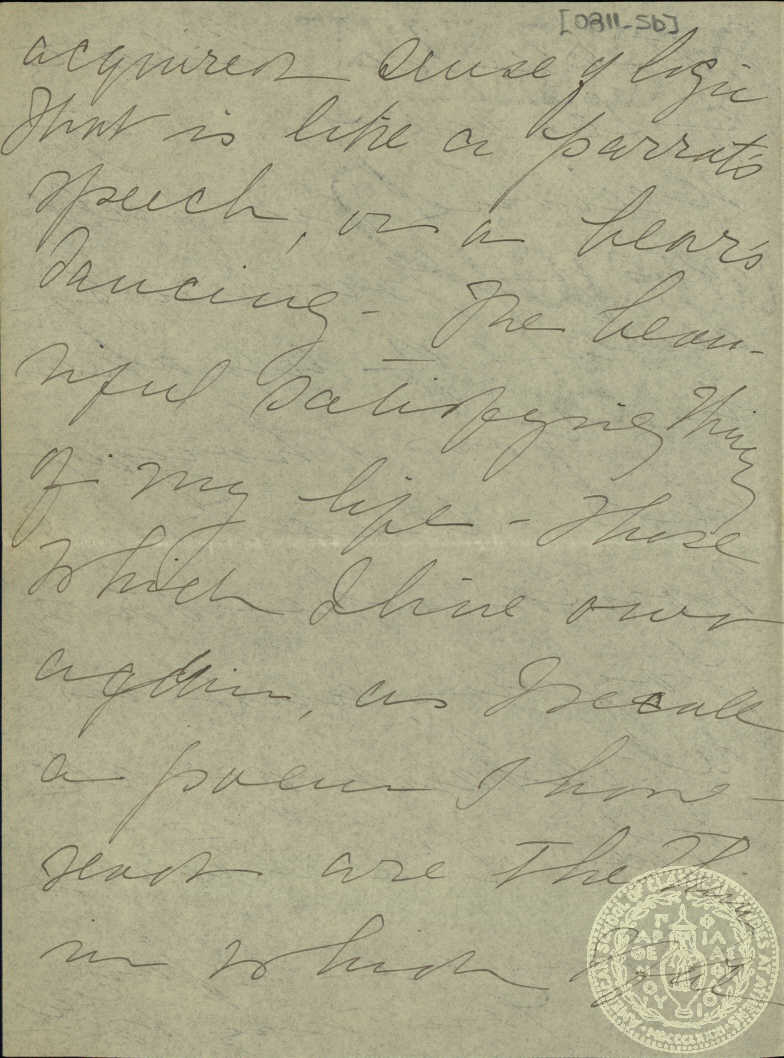 [0311-5b]
acquired sense of logic
that is like a parrot's
speech, or a bear's
dancing - The beau-
tiful satisfying things
of my life - those
which I live over
again, as I recall
a poem I have
read are the
in which